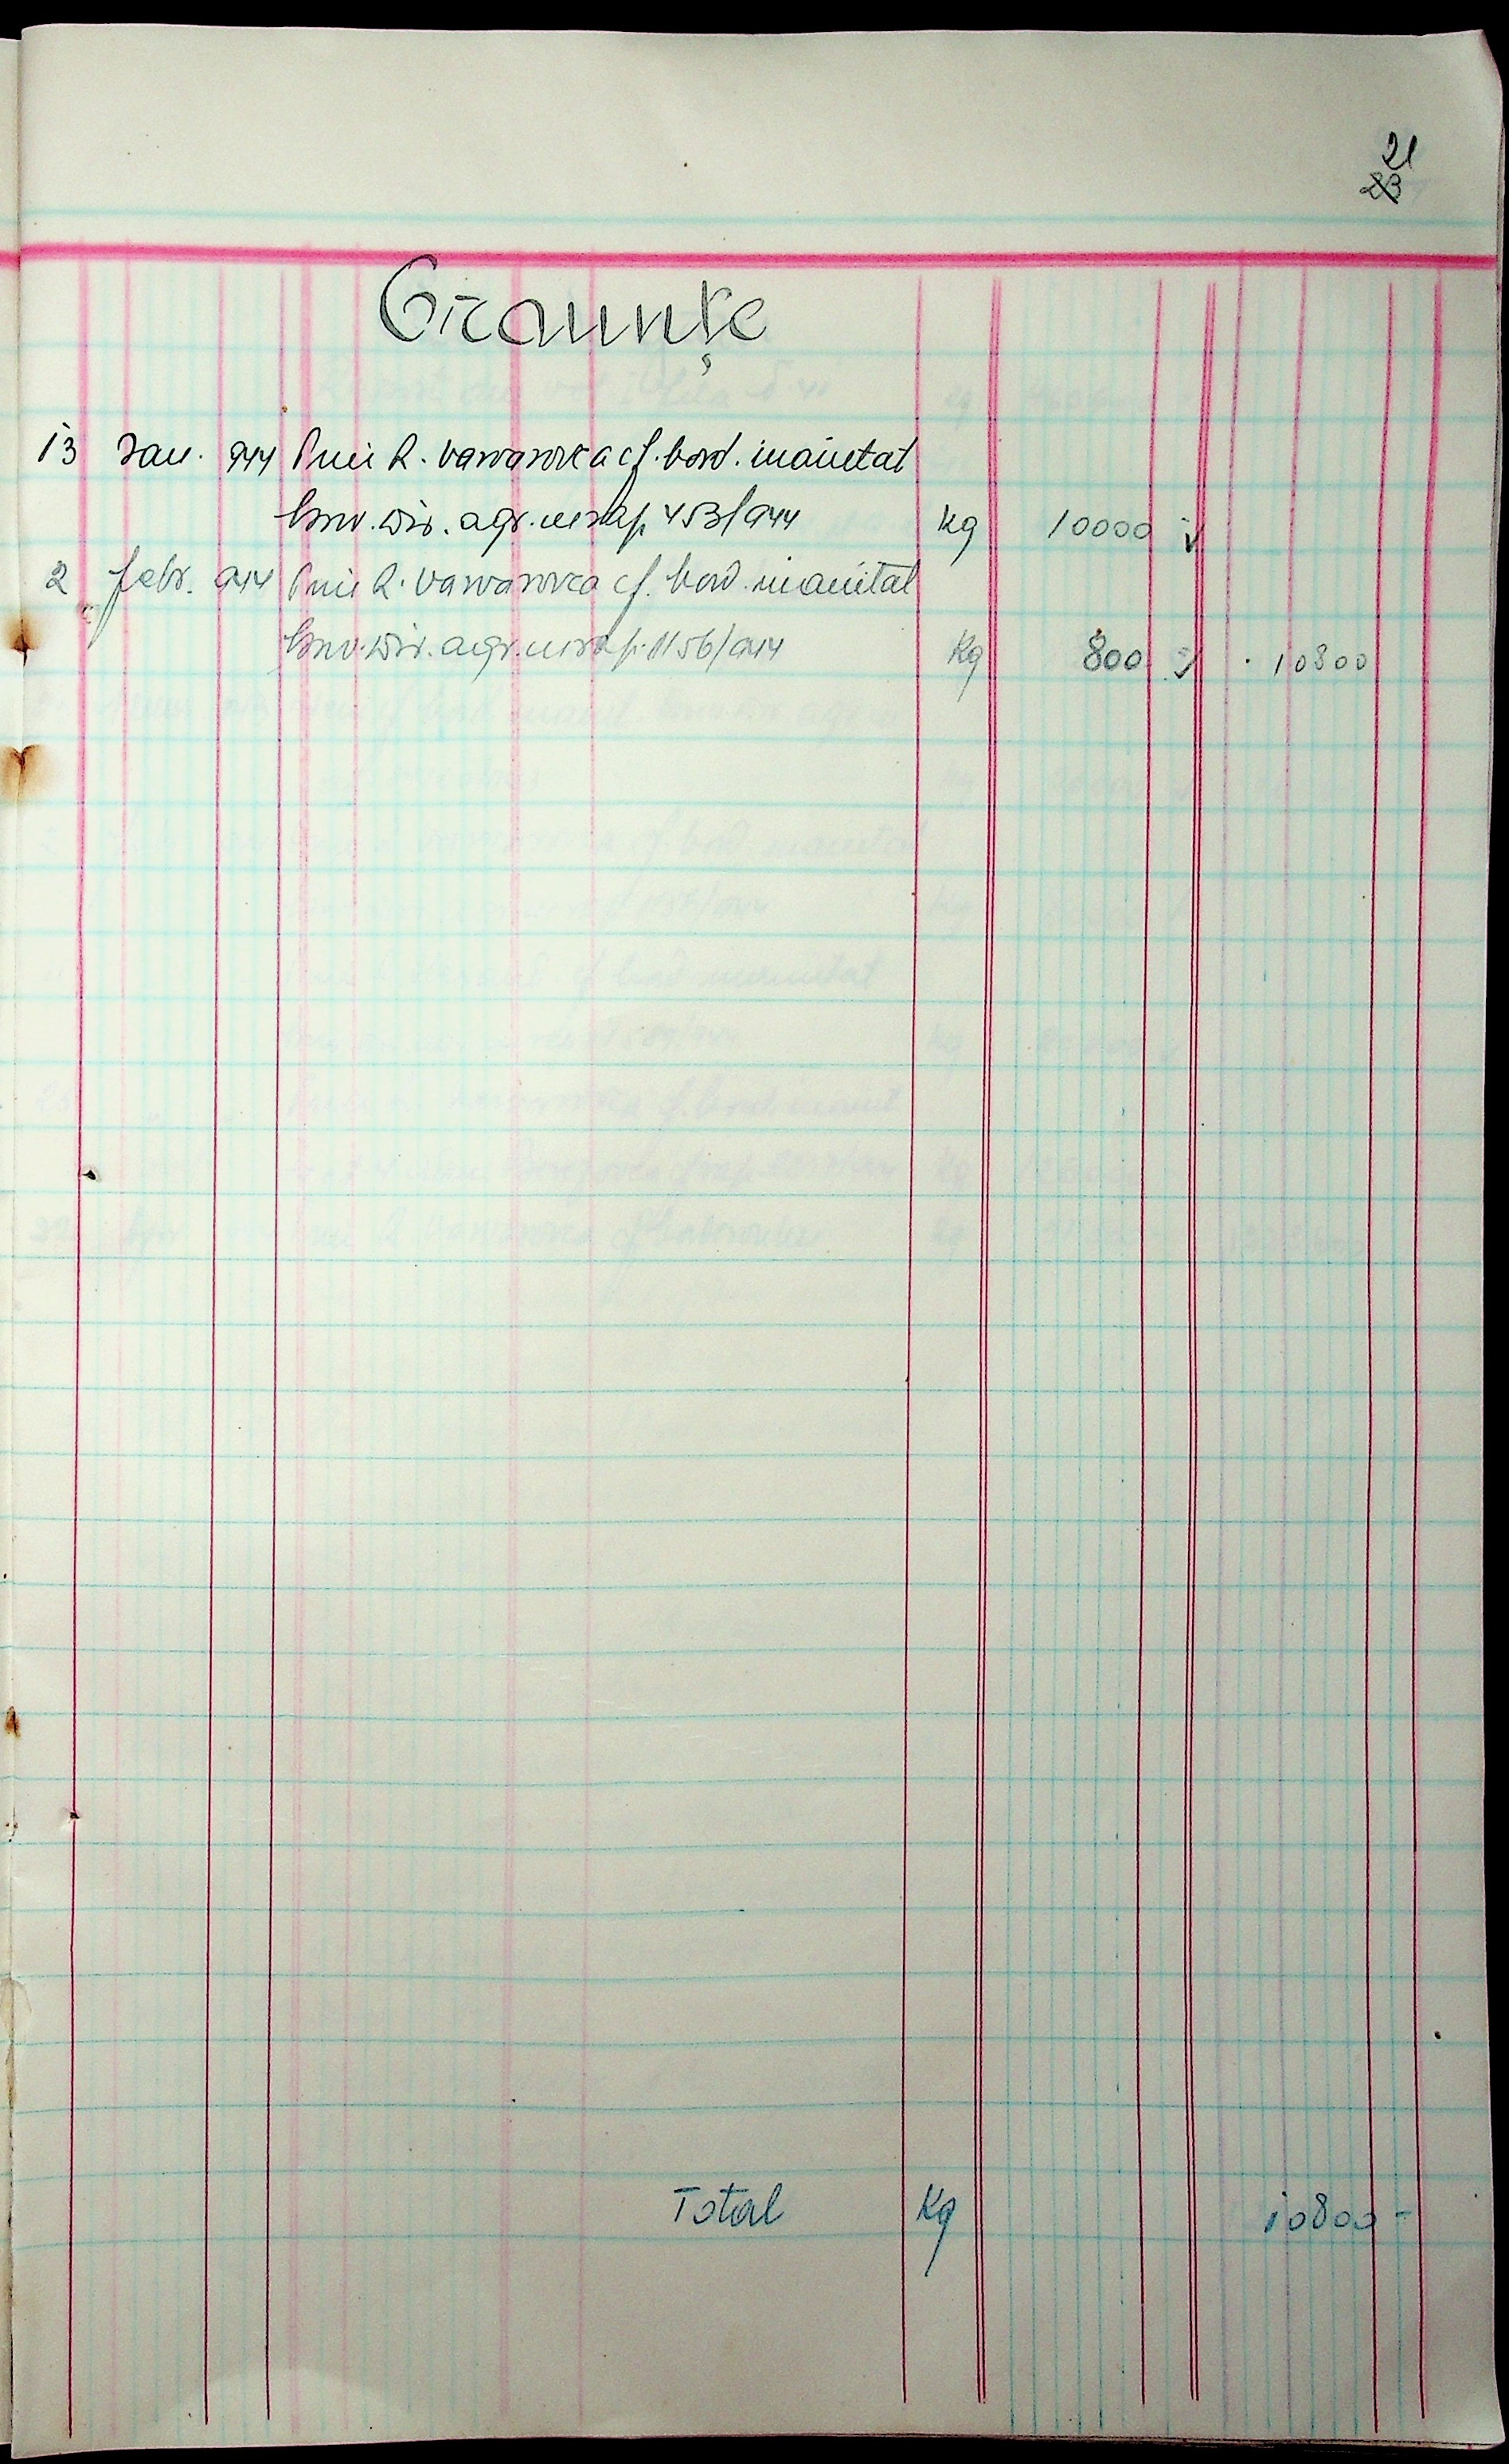 21
23
Graunțe
13 Ian. 944 Prin R. Varvarovca cf. bord. inaintat
Insp. Dir. agr. cu rap. 453/944 Kg 10000
2 febr. 944 Prin R. Varvarovca cf. bord. inaintat
Dir. agr. cu rap. 1156/944 Kg 800 10800
Total Kg 10800 -